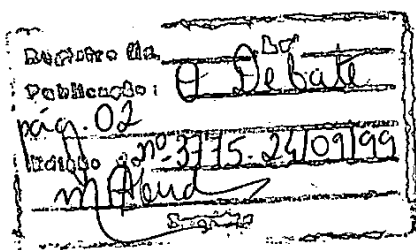 Registro da
Publicação: O Debate
pág. 02
Edição nº 3775. 24/09/99